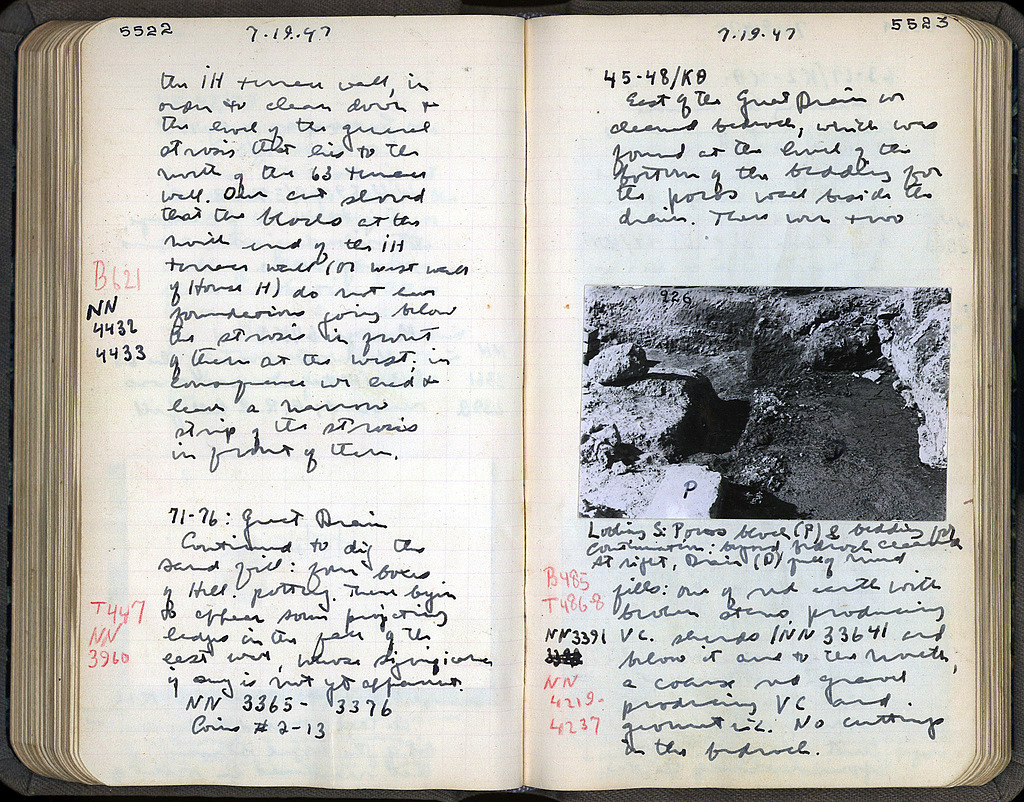 5522
7.19.47
the iH terrace wall, in
order to clean down to
the level of the general
strosis that lies to the
north of the 63 terrace
wall. Our cut showed
that the blocks at the
north end of the iH
terrace wall (or west wall
of House H) do not have
foundations going below
the strosis in front
of them at the west; in
consequence we had to
leave a narrow
strip of the strosis
in front of them.
B621
NN
4432
4433
71-76: Great Drain
Continued to dig the
sand fill: four boxes
of Hell. pottery. There begin
to appear some projecting
ledges in the face of the
east wall, whose significance
if any is not yet apparent.
NN 3365- 3376
Coins # 2-13
T447
NN
3960
5523
7.19.47
45-48/ΚΘ
East of the Great Drain we
cleaned bedrock, which was
found at the level of the
bottom of the bedding for
the poros wall beside the
drain. There were two
926
P
Looking S: Poros block (P) & bedding
continuation: beyond, bedrock
at right, Drain (D) fully
fills: one of red earth with
broken stones, producing
VC. sherds (NN 3364) and
below it and to the north,
a coarse red gravel
producing VC and
geometric. No cuttings
in the bedrock.
B485
T486-8
NN3391
NN
4219-
4237